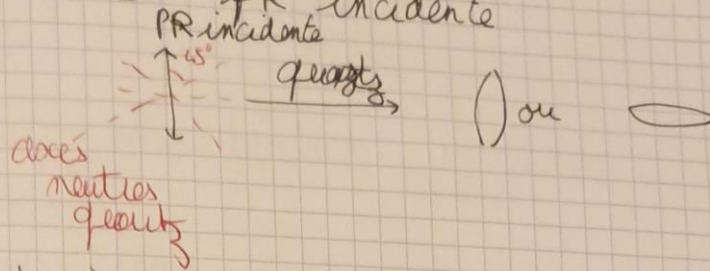 incidente
PR incidente
45°
quartz
ou
axes
neutres
quartz